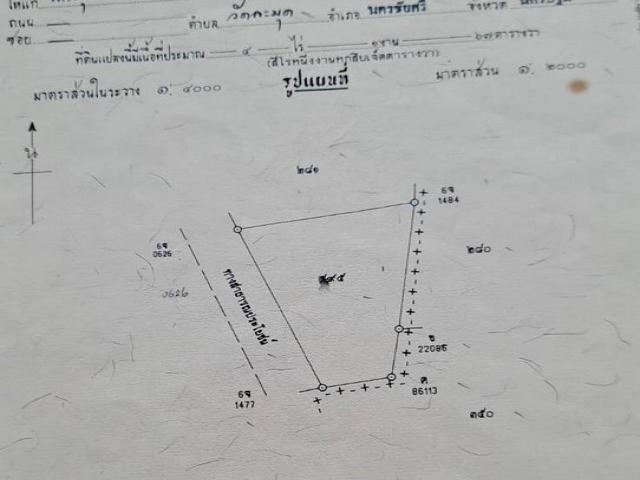 ถนน ตำบล วัดละมุด อำเภอ นครชัยศรี จังหวัด
ซอย
ที่ดินแปลงนี้มีเนื้อที่ประมาณ ๔ ไร่ ๑ งาน ๖๗ ตารางวา
(สี่ไร่หนึ่งงานหกสิบเจ็ดตารางวา)
มาตราส่วนในระวาง ๑: ๔๐๐๐ รูปแผนที่ มาตราส่วน ๑: ๒๐๐๐
๒๘๑
6จ
1484
6จ
0626
0626
๒๘๐
ทางสาธารณประโยชน์
ข
22086
ค
86113
6จ
1477
๓๕๐